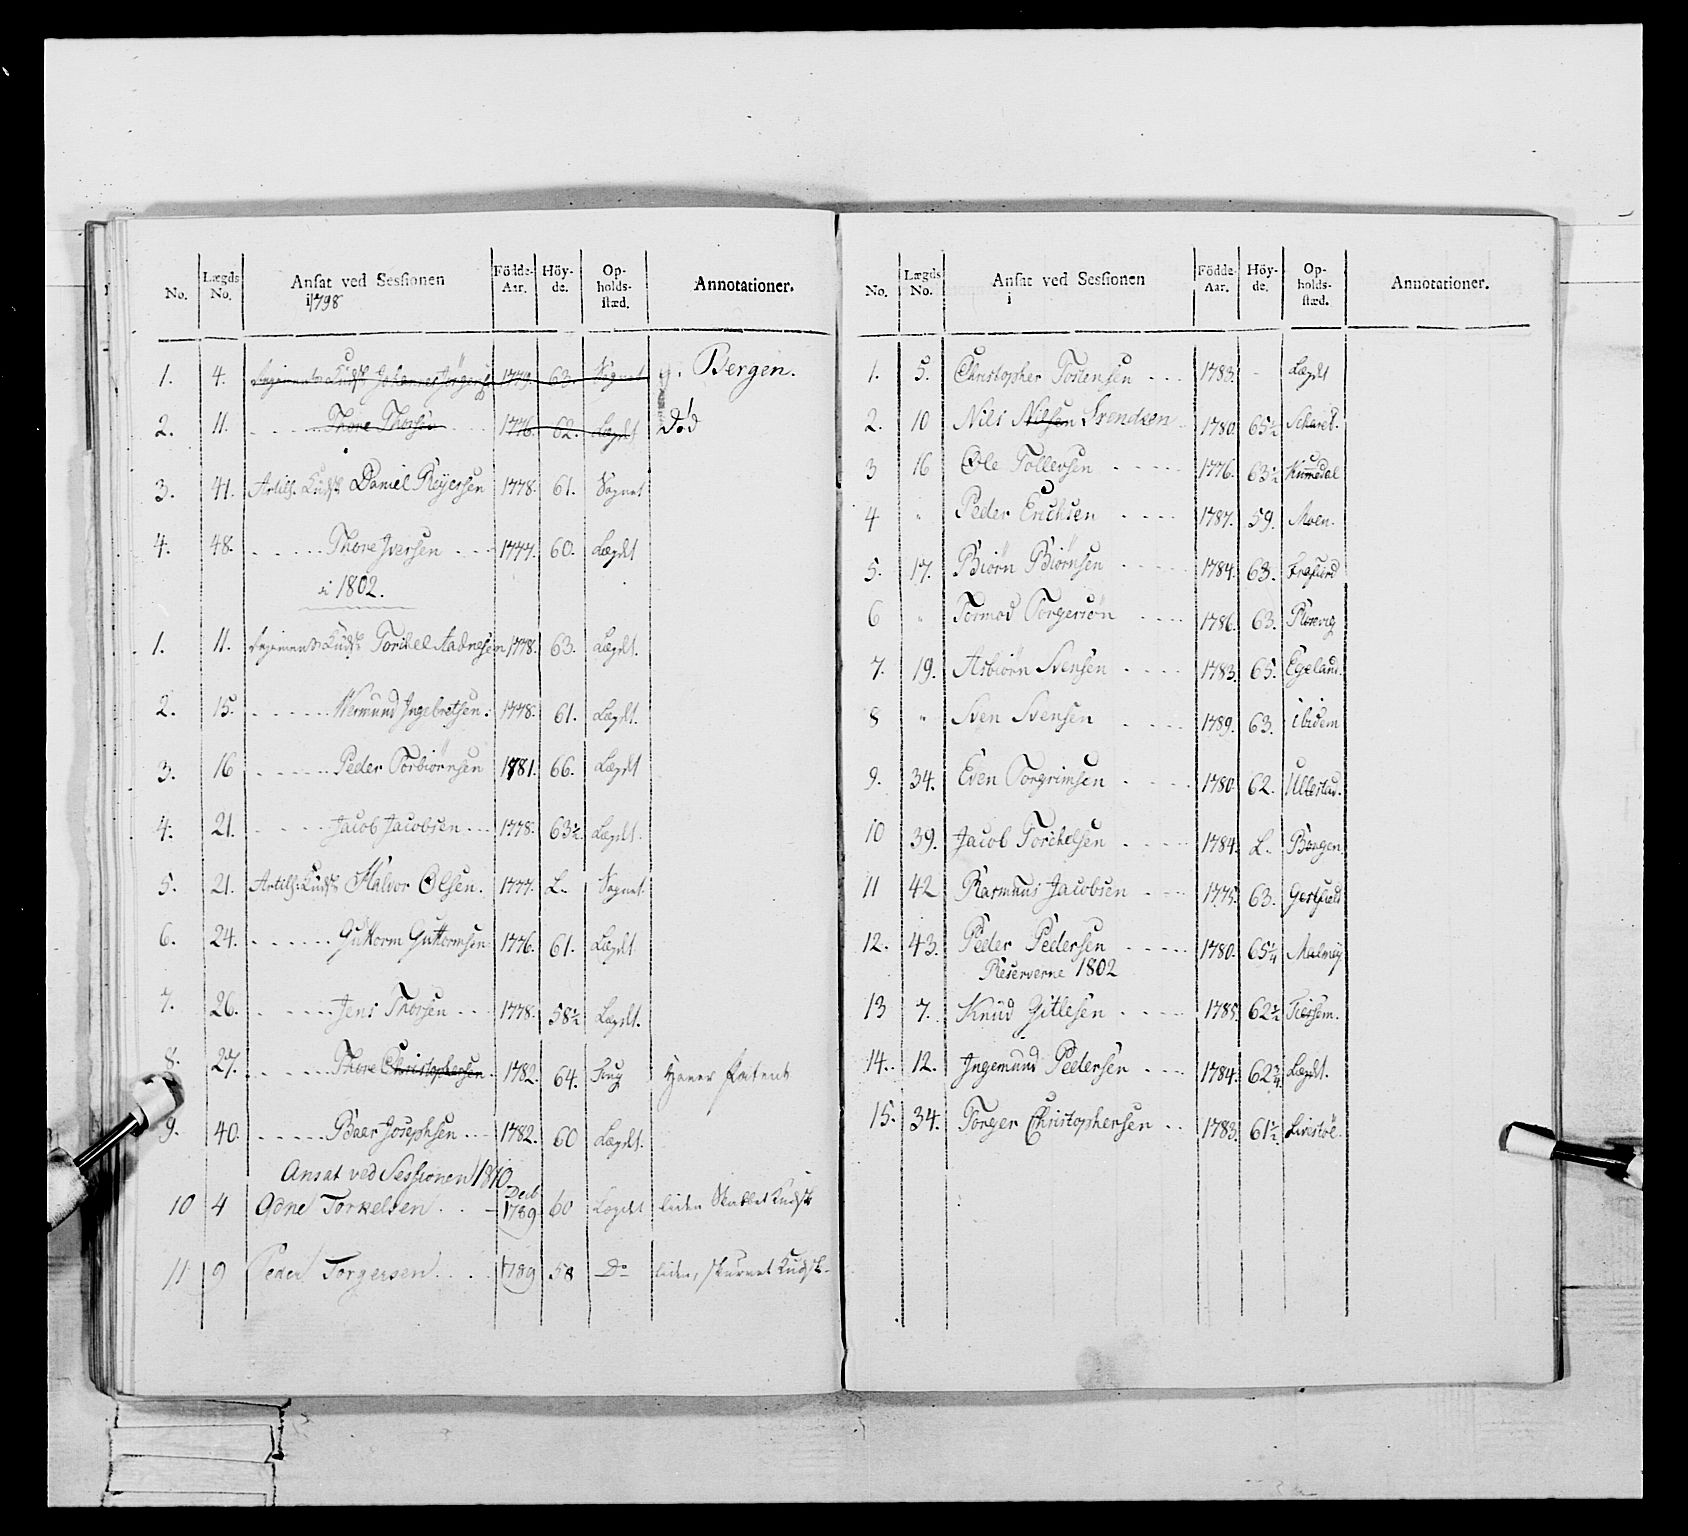 No. Lægds No. Ansat ved Sessionen i 1798 Födde-Aar. Höy-de. Op-holds-stæd. Annotationer.
1. 4. Regiments Kudsk Johannes Jörgens 1779. 63. Sognet g. Bergen.
2. 11. Thore Thorsen 1776. 62. Lægdt Död
3. 41. Artill. Kudsk Daniel Reyersen 1778. 61. Sognet
4. 48. Thore Iversen 1777. 60. Lægdt
i 1802.
1. 11. Regiments Kudsk Torkel Aadnesen 1778. 63. Lægdt.
2. 15. Wermund Ingebretsen. 1778. 61. Lægdt.
3. 16 Peder Torbiörnsen 1781. 66. Lægdt
4. 21. Jacob Jacobsen 1778. 63½ Lægdt.
5. 21. Artill. Kudsk Halvor Olsen. 1777. L. Sognet
6. 24. Guttorm Guttormsen 1776. 61. Lægdt
7. 26. Jens Thorsen 1778. 58½ Lægdt.
8. 27. Thore Christophersen 1782. 64.
9. 40. Baer Josephsen 1782. 60 Lægdt.
Ansat ved Sessionen 1810
10 4 Odne Torkelsen Decb 1789 60 Lægdt liden Kudsk
11 9 Peder Torgersen 1789 58 Do liden, Kudsk
No. Lægds No. Ansat ved Sessionen i Födde-Aar. Höy-de. Op-holds-stæd. Annotationer.
1. 5. Christopher Tostensen 1783. - Lægdt
2. 10 Nils Nilsen Svendsen 1780 65½
3 16 Ole Tollevsen 1776. 63½ Kumedal
4 " Peder Erichsen 1787. 59. Moen.
5. 17. Biörn Biörnsen 1784. 63.
6 " Tormod Torgersön 1786. 63.
7. 19. Asbiörn Svensen 1783. 65. Egeland.
8 " Sven Svensen 1789. 63. ibidem
9. 34. Even Torgrimsen 1780 62. Ullestad.
10 39. Jacob Torchelsen 1784. L. Bergen.
11 42 Rasmus Jacobsen 1775. 63.
12. 43. Peder Pedersen 1780. 65¼
Reserverne 1802
13 7. Knud Gitlesen 1785. 62½
14. 12. Ingemund Pedersen 1784. 62¾ Lægdt.
15. 34. Torger Christophersen 1783. 61½